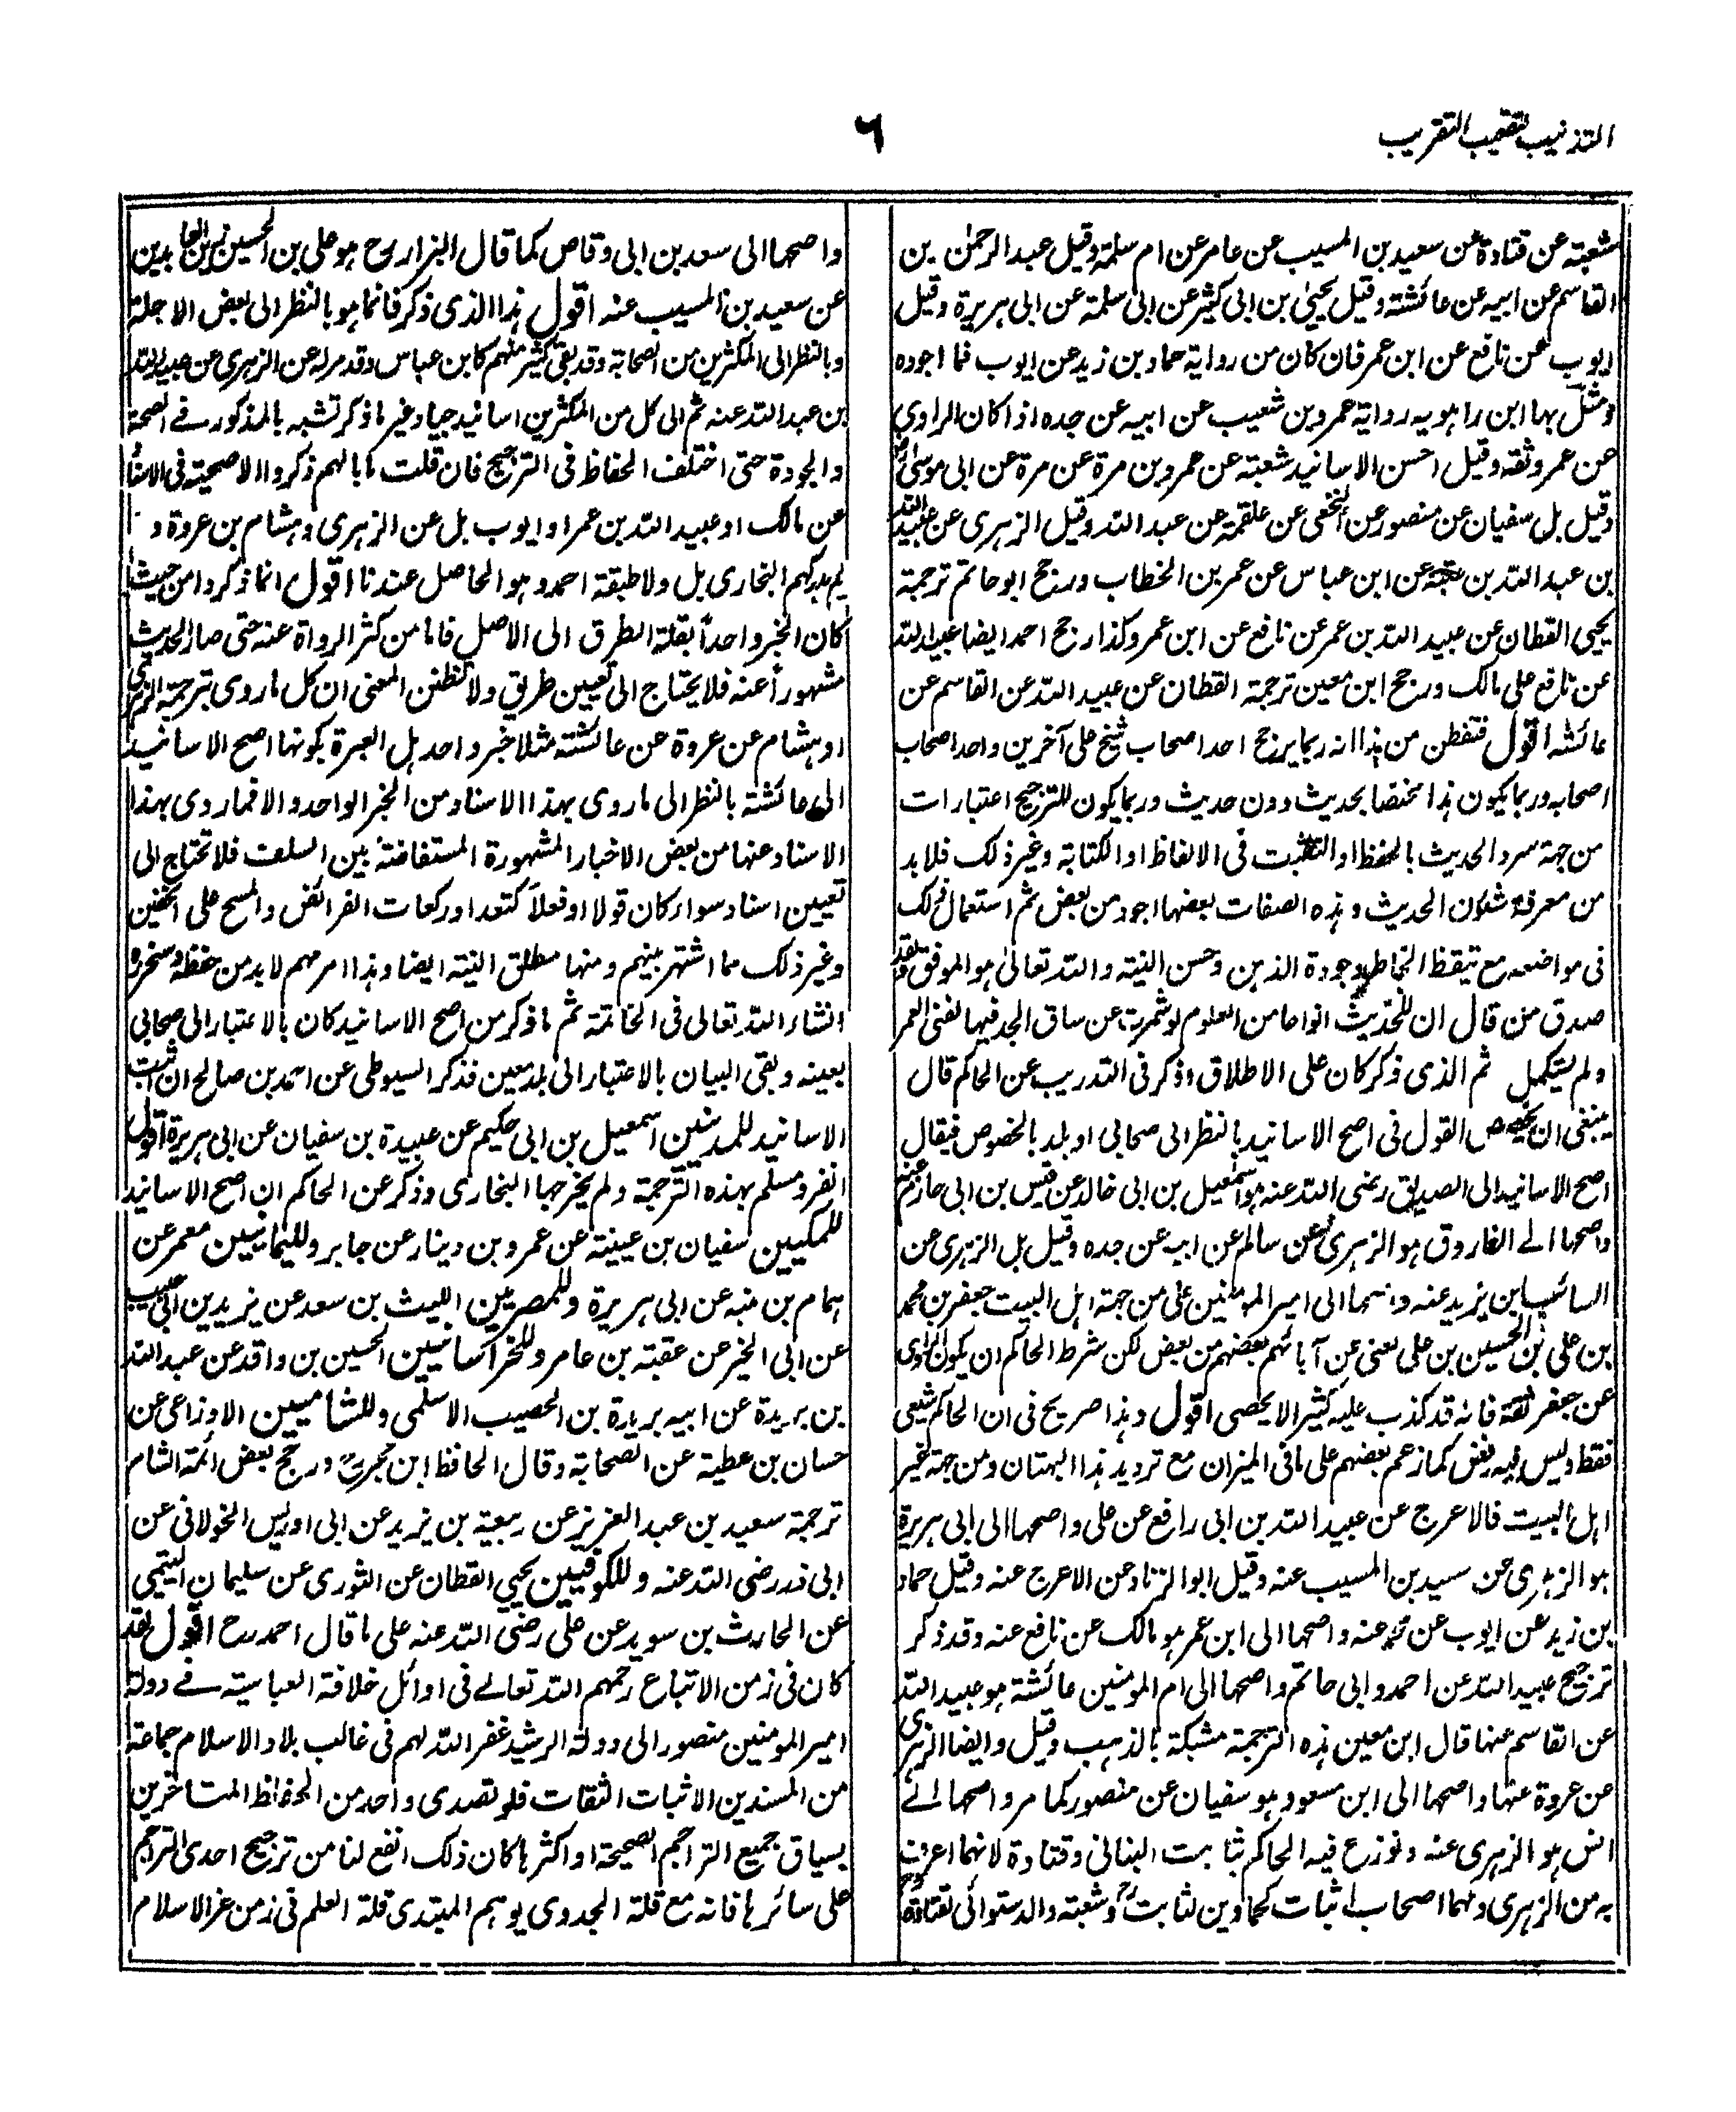 التذنيب لتعقيب التقريب
٦
شعبة عن قتادة عن سعيد بن المسيب عن عامر عن ام سلمة وقيل عبد الرحمن بن
القاسم عن ابيه عن عائشة وقيل يحيى بن ابى كثير عن ابى سلمة عن ابى هريرة وقيل
ايوب عن نافع عن ابن عمر فان كان من رواية حماد بن زيد عن ايوب فما اجوده
ومثل بها ابن راهويه رواية عمرو بن شعيب عن ابيه عن جده اذا كان الراوي
عن عمرو ثقة وقيل احسن الاسانيد شعبة عن عمرو بن مرة عن مرة عن ابى موسى
وقيل بل سفيان عن منصور عن النخعى عن علقمة عن عبد الله وقيل الزهرى عن عبيد الله
بن عبد الله بن عتبة عن ابن عباس عن عمر بن الخطاب ورجح ابو حاتم ترجمة
يحيى القطان عن عبيد الله بن عمر عن نافع عن ابن عمر وكذا رجح احمد ايضا عبيد الله
عن نافع على مالك ورجح ابن معين ترجمة القطان عن عبيد الله عن القاسم عن
عائشه اقول فتفطن من هذا انه ربما يرجح احد اصحاب شيخ على آخرين واحد اصحاب
اصحابه وربما يكون هذا مختصا بحديث دون حديث وربما يكون للترجيح اعتبارات
من جهة سرد الحديث بالحفظ او التثبت فى الالفاظ او الكتابة وغير ذلك فلا بد
من معرفة شئون الحديث وهذه الصفات بعضها اجود من بعض ثم استعمال ذلك
فى مواضعه مع تيقظ الخاطر وجودة الذهن وحسن النية والله تعالى هو الموفق ولقد
صدق من قال ان للحديث انواعا من العلوم لو شمرت عن ساق الجد فيها لفنى العمر
ولم يتكمل ثم الذى ذكر كان على الاطلاق وذكر فى التدريب عن الحاكم قال
ينبغى ان يخص القول فى اصح الاسانيد بالنظر الى صحابى او بلد بالخصوص فيقال
اصح الاسانيد الى الصديق رضى الله عنه هو اسمعيل بن ابى خالد عن قيس بن ابى حازم عنه
واصحها الے الفاروق هو الزهرى عن سالم عن ابيه عن جده وقيل بل الزهرى عن
السائب ابن يزيد عنه واصحها الى امير المؤمنين على من جهة اهل البيت جعفر بن محمد
بن على بن الحسين بن على يعنى عن آبائهم بعضهم من بعض لكن شرط الحاكم ان يكون الراوى
عن جعفر ثقة فانه قد كذب عليه كثير لا يحصى اقول وهذا صريح فى ان الحاكم شيعى
فقط وليس فيه رفض كما زعم بعضهم على ما فى الميزان مع ترديد هذا البهتان ومن جهة غير
اهل البيت فالاعرج عن عبيد الله بن ابى رافع عن على واصحها الى ابى هريرة
هو الزهرى عن سعيد بن المسيب عنه وقيل ابو الزناد عن الاعرج عنه وقيل حماد
بن زيد عن ايوب عن محمد عنه واصحها الى ابن عمر هو مالك عن نافع عنه وقد ذكر
ترجيح عبيد الله عن احمد وابى حاتم واصحها الى ام المومنين عائشة هو عبيد الله
عن القاسم عنها قال ابن معين هذه الترجمة مشبكة بالذهب وقيل وايضا الزهرى
عن عروة عنها واصحها الى ابن مسعود هو سفيان عن منصور كما مر واصحها الے
انس هو الزهرى عنه ونوزع فيه الحاكم ثابت البنانى وقتادة لانهما اعرف
به من الزهرى ولهما اصحاب اثبات كحمادين لثابت وشعبة والدستوائى لقتادة
واصحها الى سعد بن ابى وقاص كما قال البزار رح هو على بن الحسين زين العابدين
عن سعيد بن المسيب عنه اقول هذا الذى ذكر فانما هو بالنظر الى بعض الاجلة
وبالنظر الى المكثرين من الصحابة وقد بقى كثير منهم كابن عباس وقد مر له عن الزهرى عن عبيد الله
بن عبد الله عنه ثم الى كل من المكثرين اسانيد جياد غير ما ذكر تشبه بالمذكور فے الصحة
والجودة حتى اختلف الحفاظ فى الترجيح فان قلت ما بالهم ذكروا الاصحية فى الاسناد
عن مالك او عبيد الله بن عمر او ايوب بل عن الزهرى وهشام بن عروة و
لم يدركهم البخارى بل ولا طبقة احمد وهو الحاصل عندنا اقول انما ذكروا من حيث
كان الخبر واحداً بقلة الطرق الى الاصل فاما من كثر الرواة عنه حتى صار الحديث
مشهوراً عنه فلا يحتاج الى تعيين طريق ولا تظنن المعنى ان كل ما روى بترجمة الزهرى
او هشام عن عروة عن عائشة مثلا خبر واحد بل العبرة بكونها اصح الاسانيد
الى عائشة بالنظر الى ما روى بهذا الاسناد من الخبر الواحد والا فما روى بهذا
الاسناد عنها من بعض الاخبار المشهورة المستفاضة بين السلف فلا تحتاج الى
تعيين اسناد سواء كان قولا او فعلا كتعدد ركعات الفرائض والمسح على الخفين
وغير ذلك مما اشتهر بينهم ومنها مطلق النية ايضا وهذا امر مهم لا بد من حفظه وسنحرره
انشاء الله تعالى فى الخاتمة ثم ما ذكر من اصح الاسانيد كان بالاعتبار الى صحابى
بعينه وبقى البيان بالاعتبار الى بلد معين فذكر السيوطى عن احمد بن صالح ان اثبت
الاسانيد للمدنيين اسمعيل بن ابى حكيم عن عبيدة بن سفيان عن ابى هريرة اقول
انفرد مسلم بهذه الترجمة ولم يخرجها البخارى وذكر عن الحاكم ان اصح الاسانيد
للمكيين سفيان بن عيينة عن عمرو بن دينار عن جابر ولليمانيين معمر عن
همام بن منبه عن ابى هريرة وللمصريين الليث بن سعد عن يزيد بن ابى حبيب
عن ابى الخير عن عقبة بن عامر وللخراسانيين الحسين بن واقد عن عبد الله
بن بريدة عن ابيه بريدة بن الحصيب الاسلمى وللشاميين الاوزاعى عن
حسان بن عطية عن الصحابة وقال الحافظ ابن حجر رح ورجح بعض ائمة الشام
ترجمة سعيد بن عبد العزيز عن ربيعة بن يزيد عن ابى ادريس الخولانى عن
ابى ذر رضى الله عنه وللكوفيين يحيى القطان عن الثورى عن سليمان التيمى
عن الحارث بن سويد عن على رضى الله عنه على ما قال احمد رح اقول لقد
كان فى زمن الاتباع رحمهم الله تعالے فى اوائل خلافة العباسية فے دولة
امير المومنين منصور الى دولة الرشيد غفر الله لهم فى غالب بلاد الاسلام جماعة
من المسندين الاثبات الثقات فلو تصدى واحد من الحفاظ المتاخرين
بسياق جميع التراجم الصحيحة او اكثرها كان ذلك انفع لنا من ترجيح احدى التراجم
على سائرها فانه مع قلة الجدوى يوهم المبتدى قلة العلم فى زمن عز الاسلام